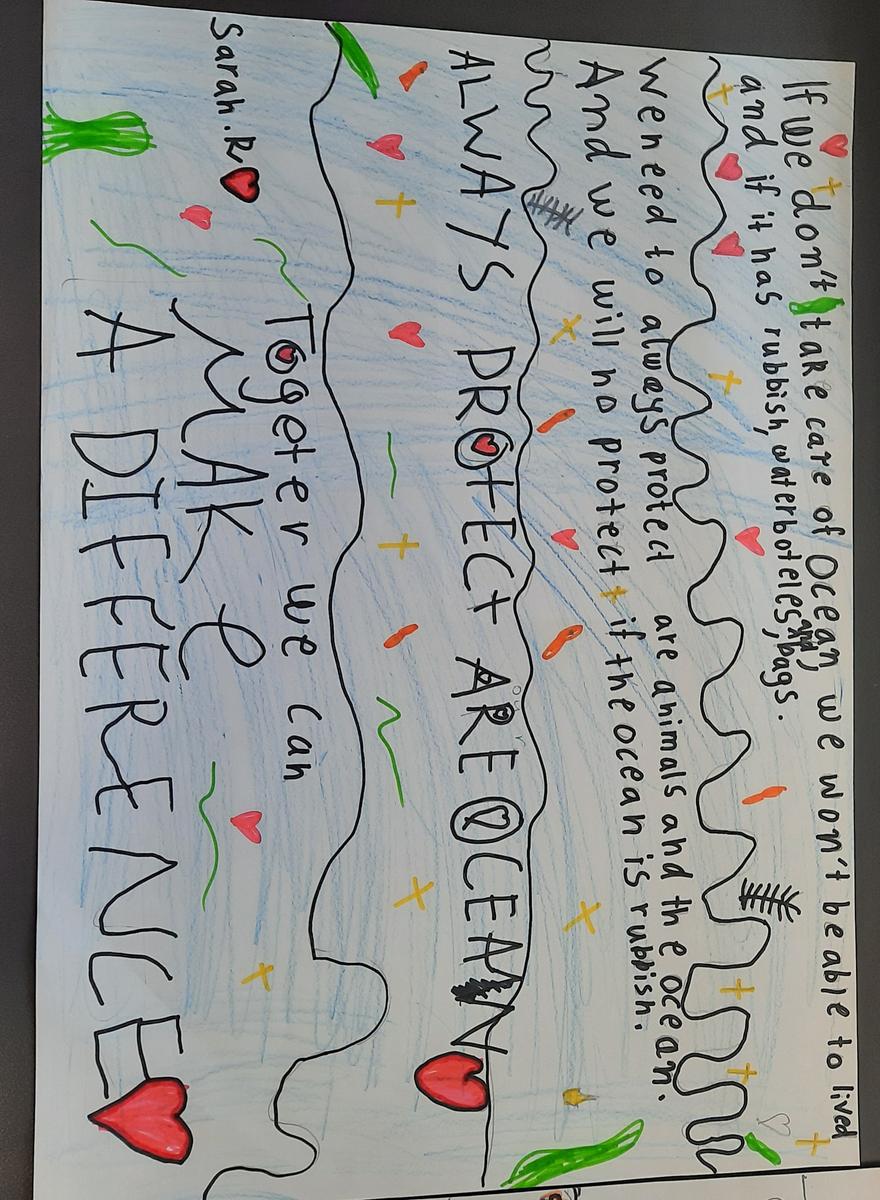 If we don't take care of Ocean we won't be able to lived
and if it has rubbish, waterboteles, bags.
We need to always protect are animals and the ocean.
And we will no protect if the ocean is rubbish.
ALWAYS PROTECT ARE OCEAN
Togeter we can
MAKe
A DIFFERENCE
Sarah.R